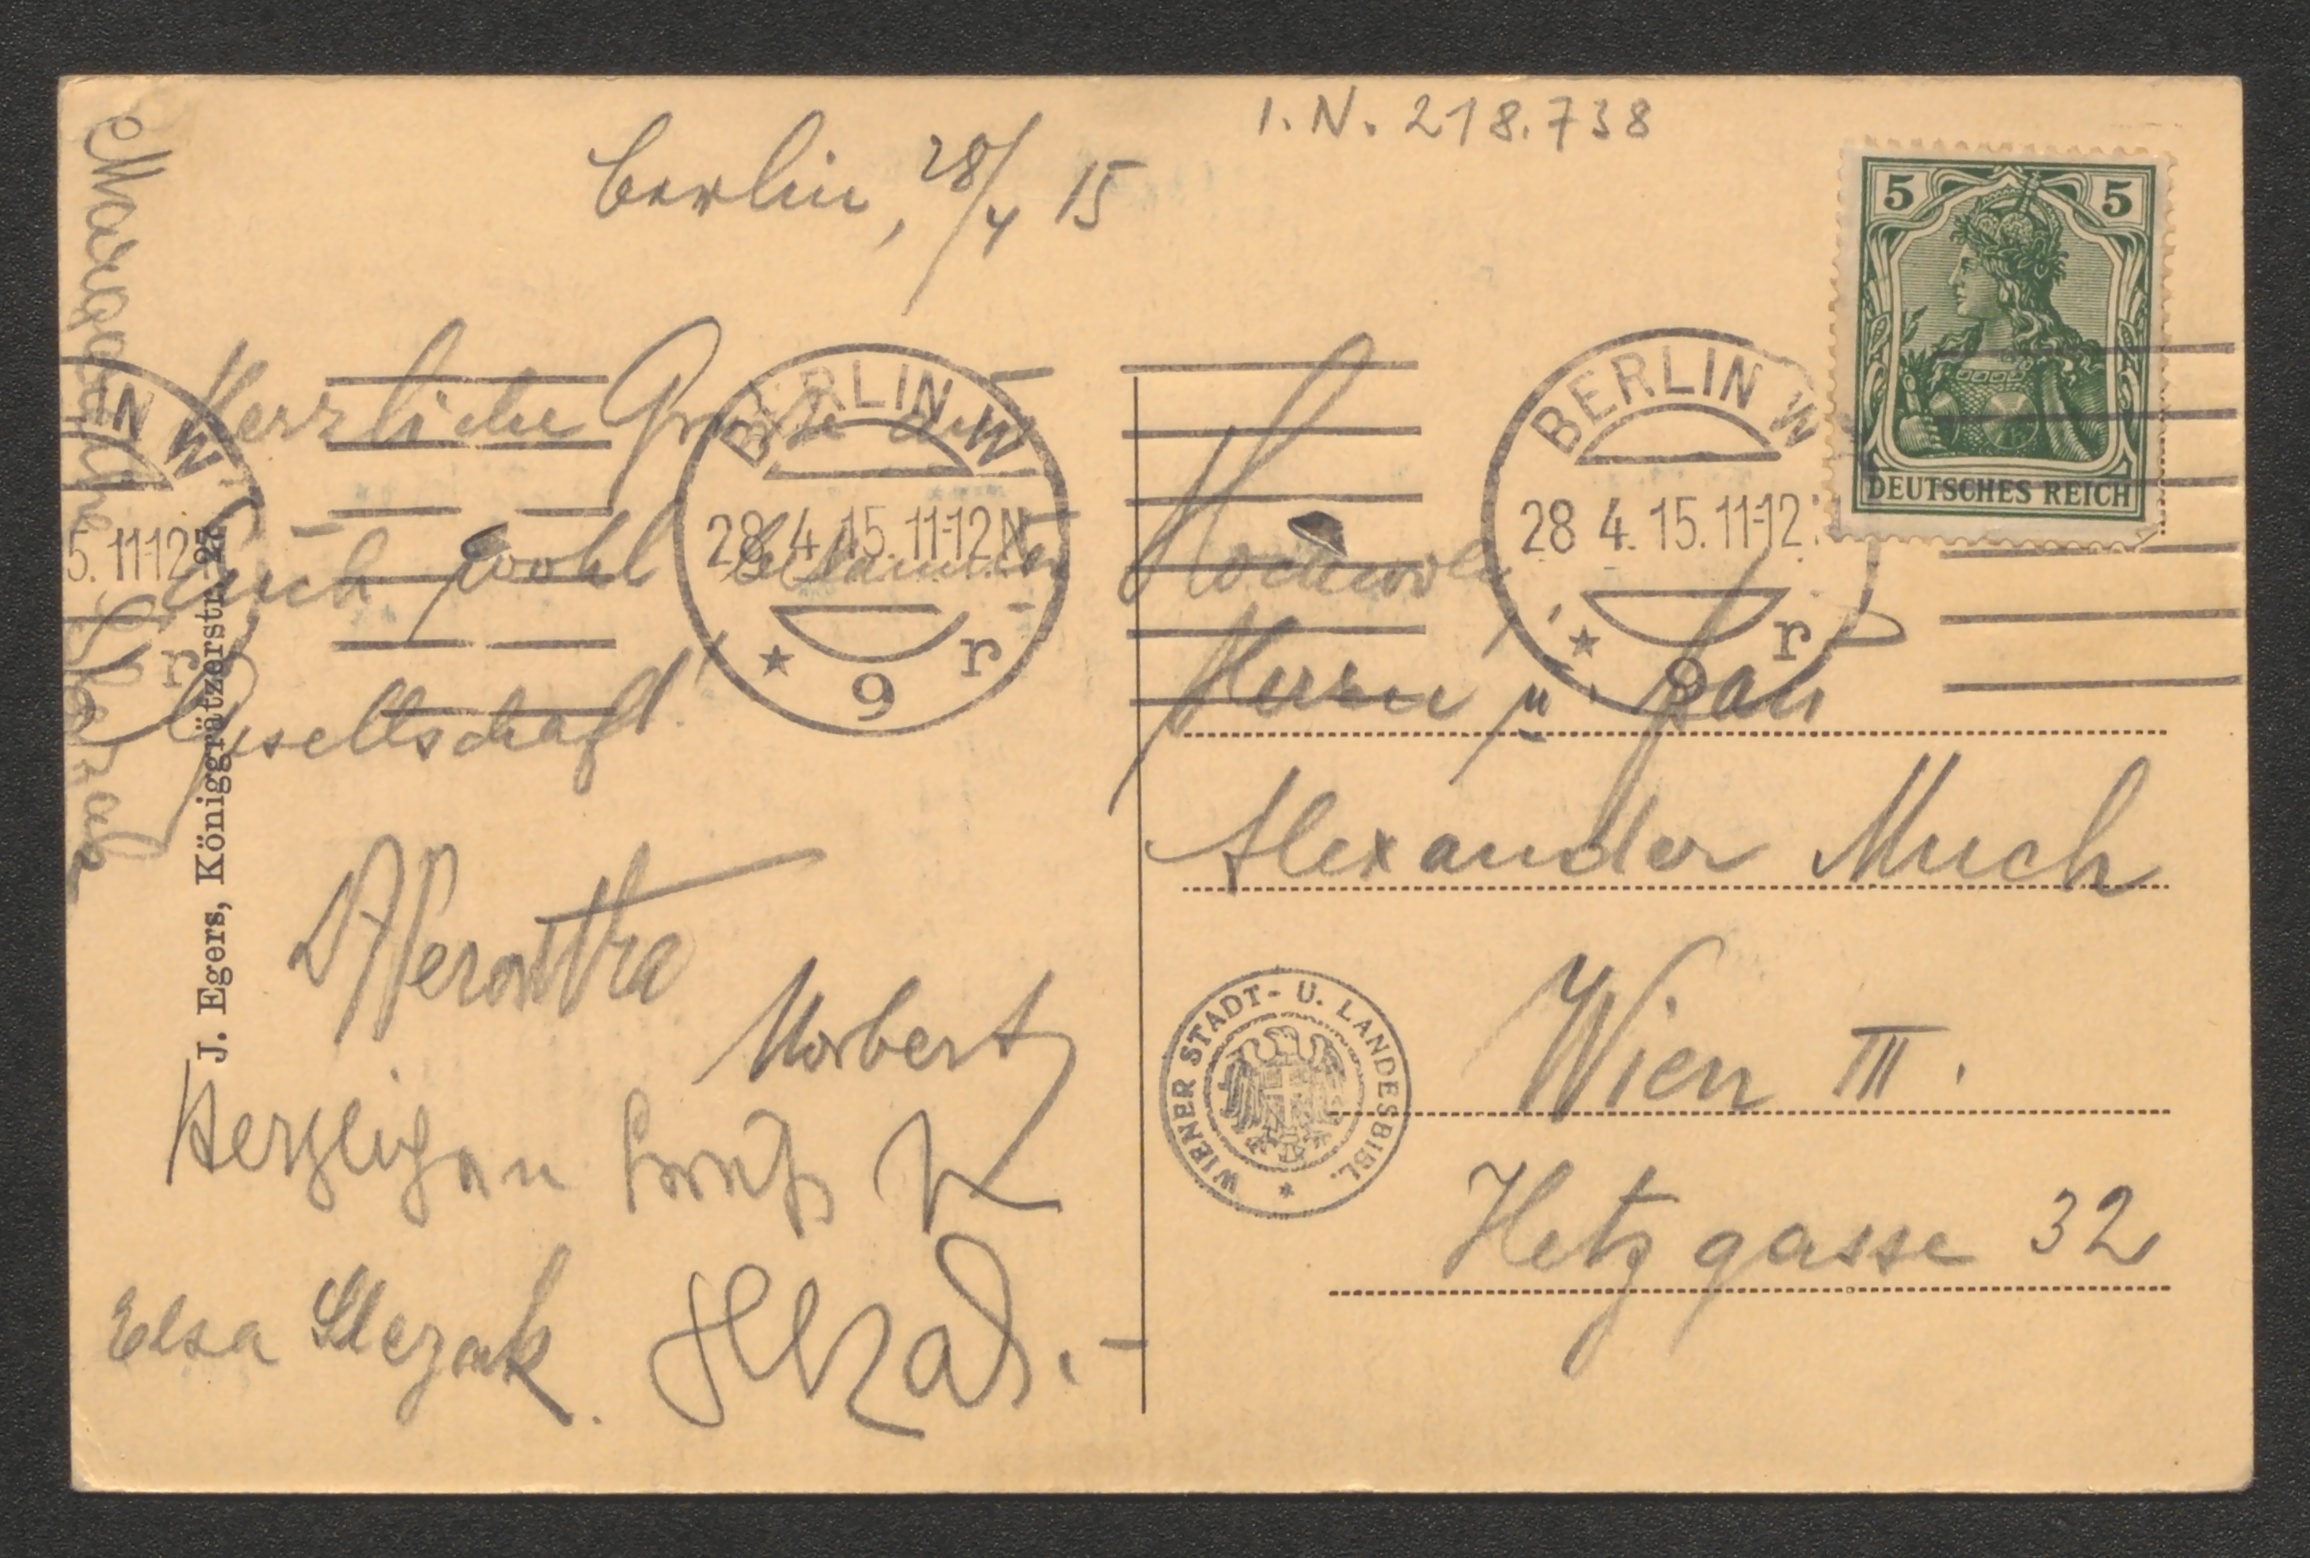 I. N. 218.738
Berlin, 28/4 15
Herzliche Grüße aus
Euch wohl bekannter
Gesellschaft!
Norbert
Herzlichen Gruß
Elsa Slezak.
Slezak.-
Margarethe Slezak
J. Egers, Königgrätzerstr. 27
5
5
DEUTSCHES REICH
IN W
5.11-12
r
BERLIN W
28.4.15.11-12N
* 9 r
BERLIN W
28.4.15.11-12
* 9 r
Hochwohl
Herrn u.
Alexander Much
Wien III.
Hetzgasse 32
WIENER STADT- U. LANDESBIBL.